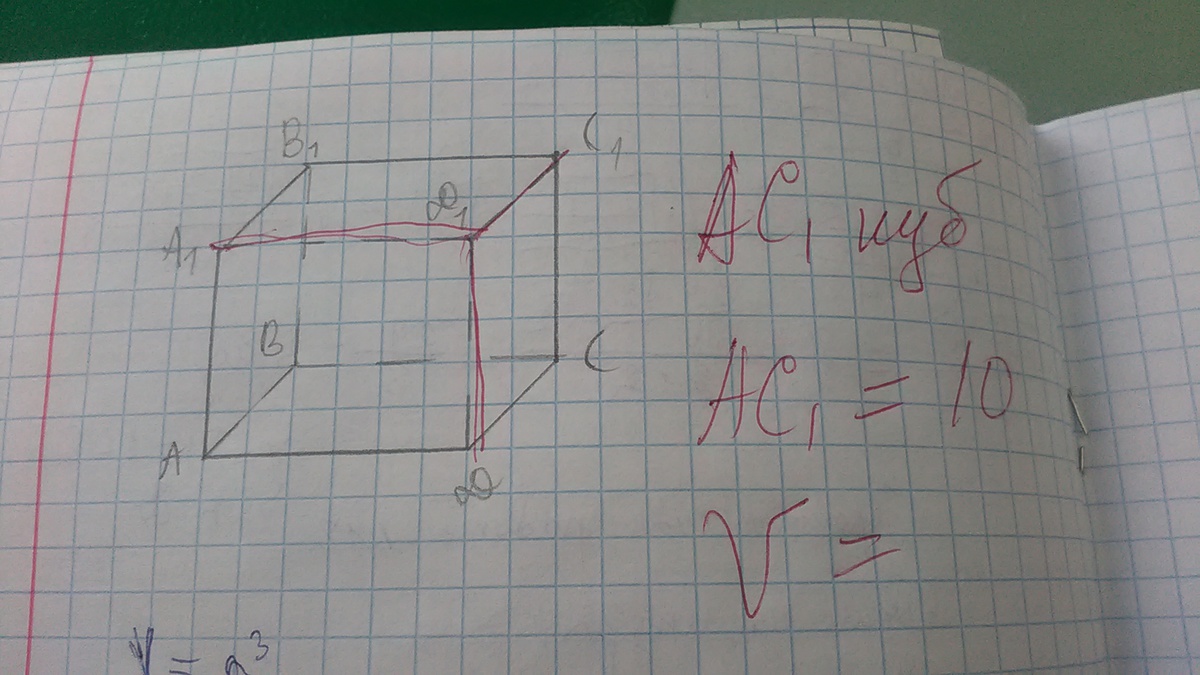 B₁
C₁
D₁
A₁
B
C
A
D
AC₁ куб
AC₁ = 10
V =
V = a³